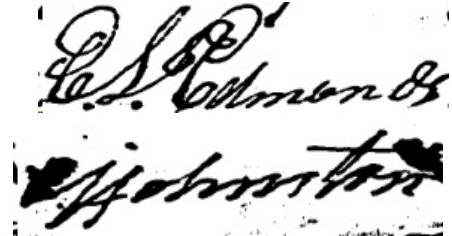 C. S. Edmonds
Johnston